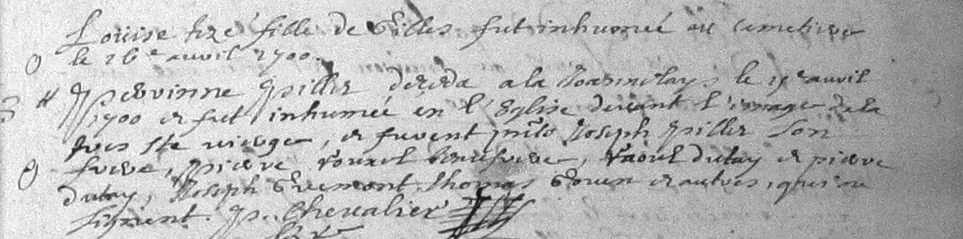 Louise fizé fille de Gilles fut inhumée au cimetiere
le 26e avril 1700.
Perrinne Piller deceda a la le avril
1700 et fut inhumée en l'Eglise devant l'image de la
tres Ste vierge, et furent pnts Joseph Piller son
frere, pierre , raoul dutay et pierre
dutay, Joseph thomas et autres, qui ne
signent. P. Chevalier